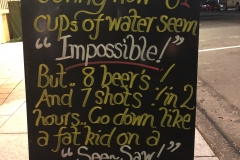 how
CUPS of water seem
"Impossible!"
But.. 8 beer's
And 7 shots in 2
hours.. Go down like
a fat kid on a
"Seen Saw!"